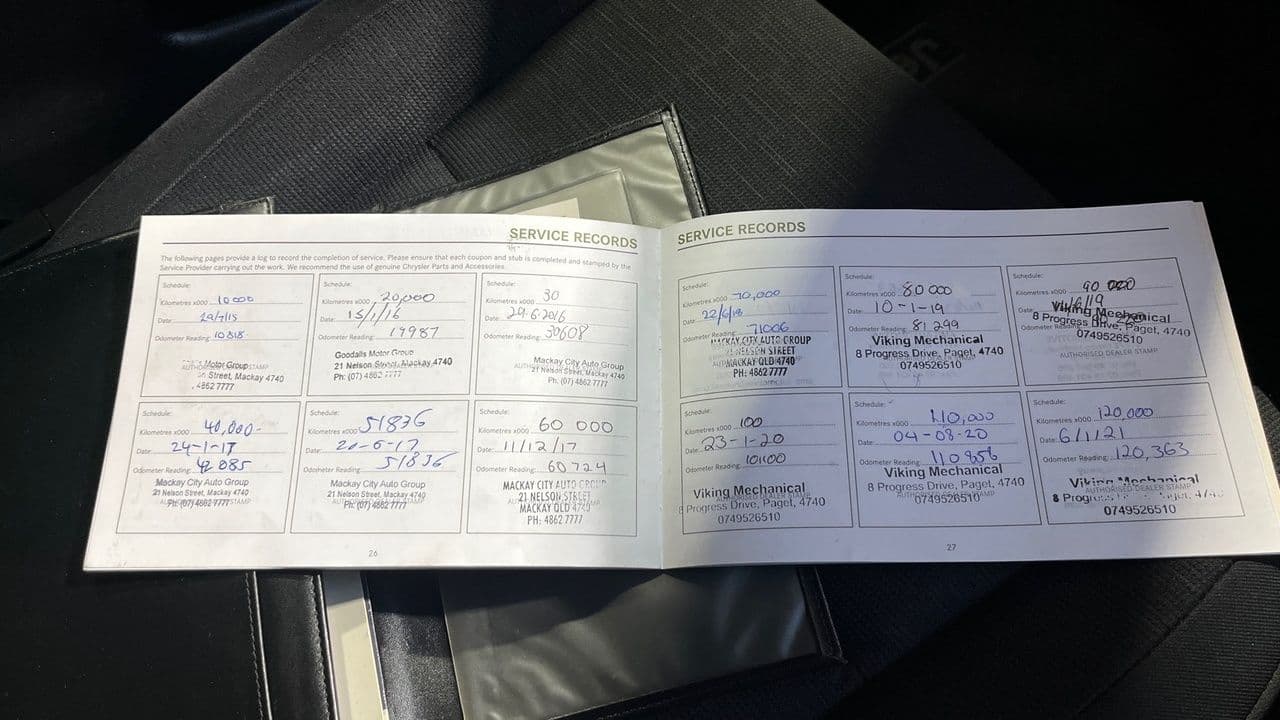 SERVICE RECORDS
The following pages provide a log to record the completion of service. Please ensure that each coupon and stub is completed and stamped by the
Service Provider carrying out the work. We recommend the use of genuine Chrysler Parts and Accessories.
Schedule:
Kilometres x000 10000
Date: 29/7/15
Odometer Reading: 10818
Motor Group
AUTHORISED DEALER STAMP
Street, Mackay 4740
4862 7777
Schedule:
Kilometres x000 20,000
Date: 15/1/16
Odometer Reading: 19987
Goodalls Motor Group
21 Nelson Street, Mackay 4740
Ph: (07) 4862 7777
Schedule:
Kilometres x000 30
Date: 29.6.2016
Odometer Reading: 30608
Mackay City Auto Group
21 Nelson Street, Mackay 4740
Ph. (07) 4862 7777
Schedule:
Kilometres x000 40,000-
Date: 24-1-17
Odometer Reading: 42085
Mackay City Auto Group
21 Nelson Street, Mackay 4740
Ph: (07) 4862 7777
Schedule:
Kilometres x000 51836
Date: 20-6-17
Odometer Reading: 51836
Mackay City Auto Group
21 Nelson Street, Mackay 4740
Ph: (07) 4862 7777
Schedule:
Kilometres x000 60 000
Date: 11/12/17
Odometer Reading: 60724
MACKAY CITY AUTO GROUP
21 NELSON STREET
MACKAY QLD 4740
PH: 4862 7777
26
SERVICE RECORDS
Schedule:
Kilometres x000 70,000
Date: 22/6/18
Odometer Reading: 71006
MACKAY CITY AUTO GROUP
21 NELSON STREET
MACKAY QLD 4740
PH: 4862 7777
Schedule:
Kilometres x000 80 000
Date: 10-1-19
Odometer Reading: 81299
Viking Mechanical
8 Progress Drive, Paget, 4740
0749526510
Schedule:
Kilometres x000 90 000
Date: 11/6/19
Viking Mechanical
Odometer Reading:
8 Progress Drive, Paget, 4740
0749526510
AUTHORISED DEALER STAMP
Schedule:
Kilometres x000 100
Date: 23-1-20
Odometer Reading: 101100
Viking Mechanical
AUTHORISED DEALER STAMP
8 Progress Drive, Paget, 4740
0749526510
Schedule:
Kilometres x000 110,000
Date: 04-08-20
Odometer Reading: 110858
Viking Mechanical
8 Progress Drive, Paget, 4740
AUTHORISED DEALER STAMP
0749526510
Schedule:
Kilometres x000 120,000
Date: 6/1/21
Odometer Reading: 120,363
Viking Mechanical
AUTHORISED DEALER STAMP
8 Progress Paget, 4740
0749526510
27